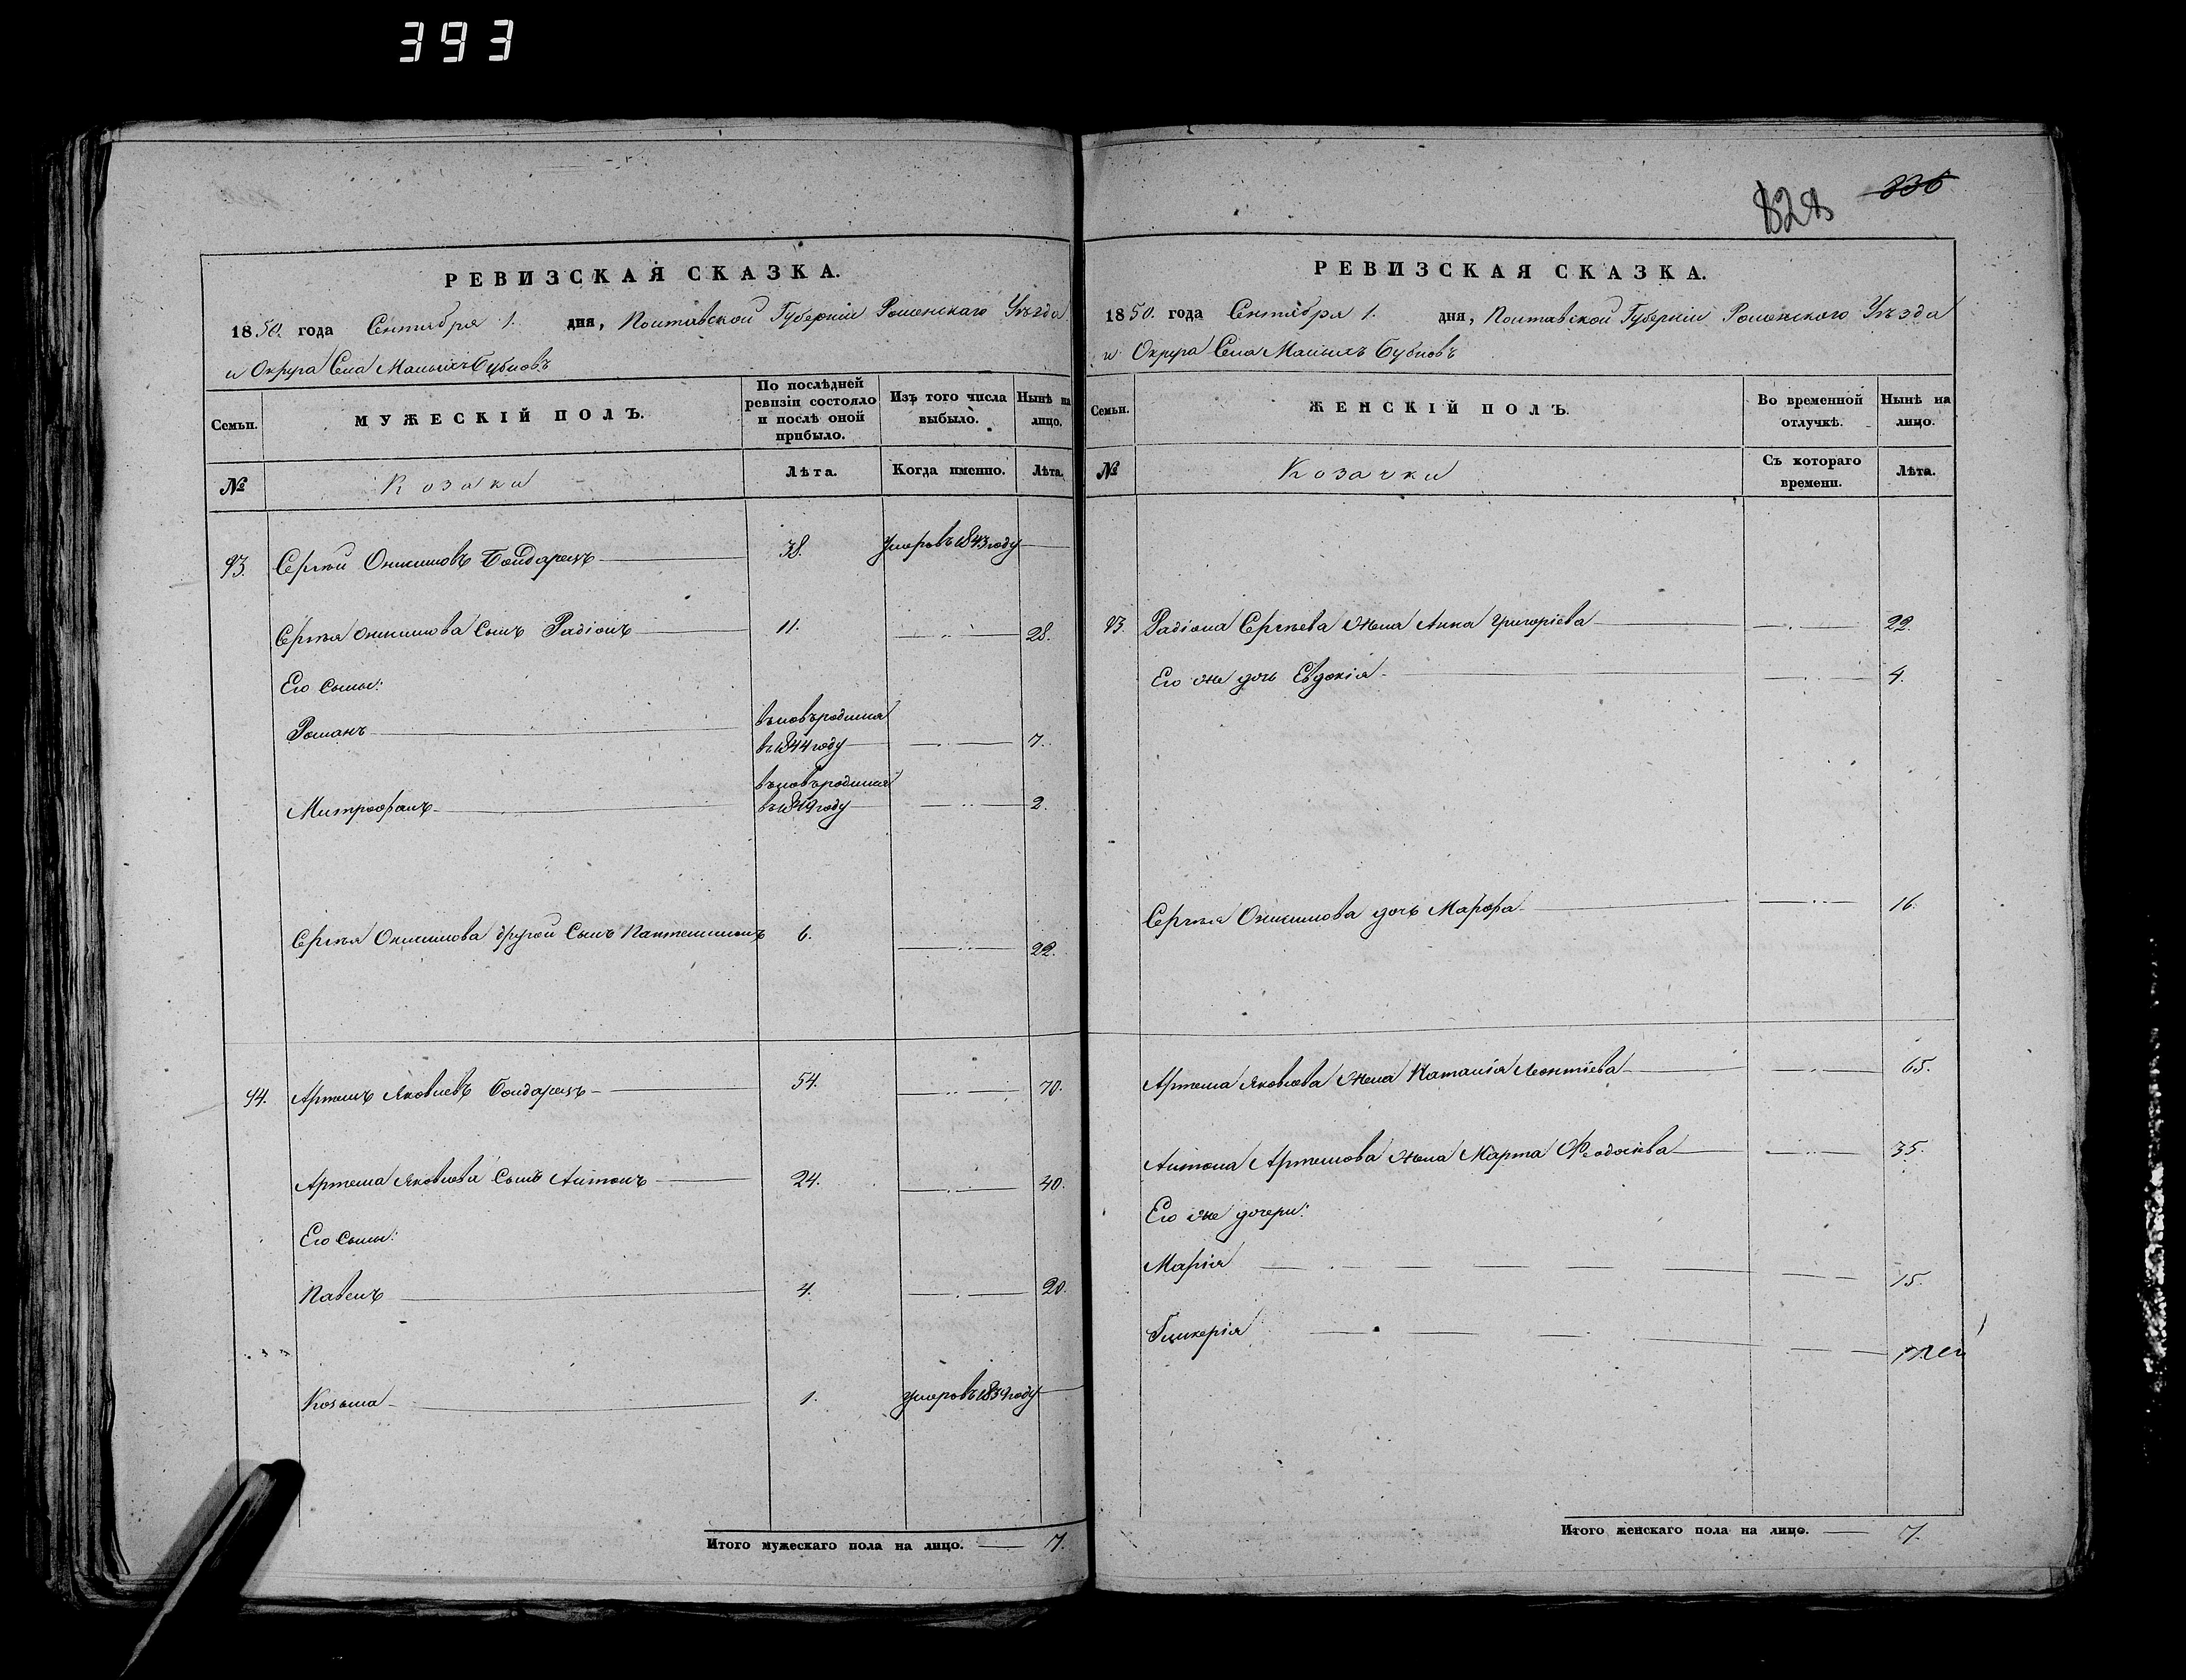 393
828 836
РЕВИЗСКАЯ СКАЗКА.
1850. года Сентября 1. дня, Полтавской Губерніи Роменскаго Уѣзда
и Округа Села Малыхъ Бубновъ
Семьи. МУЖЕСКІЙ ПОЛЪ. По послѣдней ревизіи состояло и послѣ оной прибыло. Изъ того числа выбыло. Нынѣ на лицо.
№ Козаки Лѣта. Когда именно. Лѣта.
93. Сергѣй Онисимовъ Бондарецъ 38. Умеръ въ 1843 году
Сергѣя Онисимова Сынъ Радіонъ 11. 28.
Его Сыны:
Романъ вновь родился
въ 1844 году 7.
Митрофанъ вновь родился
въ 1849 году 2.
Сергѣя Онисимова другой Сынъ Пантелимонъ 6. 22.
94. Артемъ Яковлевъ Бондарецъ 54. 70.
Артема Яковлева Сынъ Антонъ 24. 40.
Его Сыны:
Павелъ 4. 20.
Козьма 1. Умеръ въ 1839 году
Итого мужескаго пола на лицо. 7.
РЕВИЗСКАЯ СКАЗКА.
1850. года Сентября 1. дня, Полтавской Губерніи Роменскаго Уѣзда
и Округа Села Малыхъ Бубновъ
Семьи. ЖЕНСКІЙ ПОЛЪ. Во временной отлучкѣ. Нынѣ на лицо.
№ Козачки Съ котораго времени. Лѣта.
93. Радіона Сергѣева Жена Анна Григоріева 22.
Его же дочь Евдокія 4.
Сергѣя Онисимова дочь Марфа 16.
Артема Яковлева Жена Наталія Леонтіева 65.
Антона Артемова Жена Марта Ѳеодосіева 35.
Его же дочери:
Марія 15.
Гликерія
Итого женскаго пола на лицо. 7.